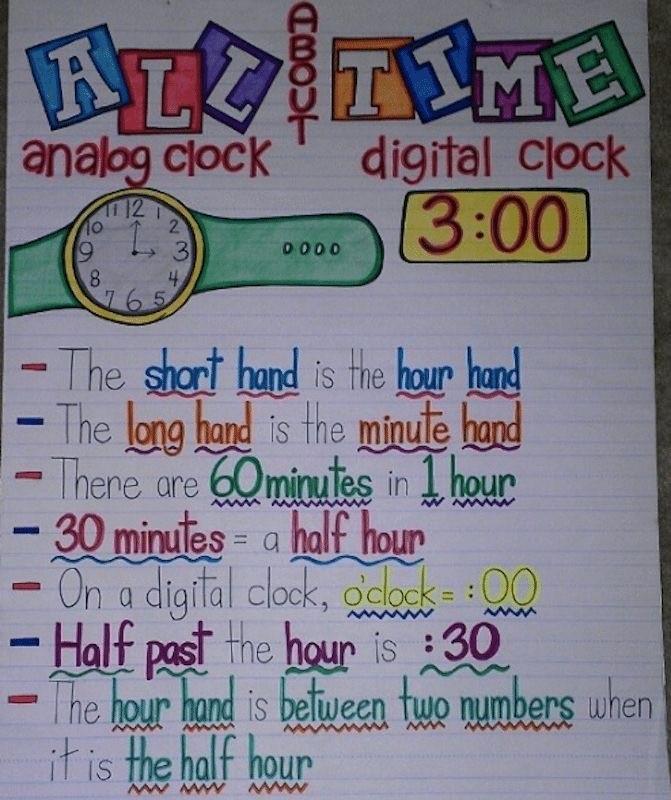 ALL ABOUT TIME
analog clock digital clock
11 12 1
10 2
9 3
8 4
7 6 5
3:00
- The short hand is the hour hand
- The long hand is the minute hand
- There are 60 minutes in 1 hour
- 30 minutes = a half hour
- On a digital clock, o'clock = :00
- Half past the hour is :30
- The hour hand is between two numbers when
it is the half hour